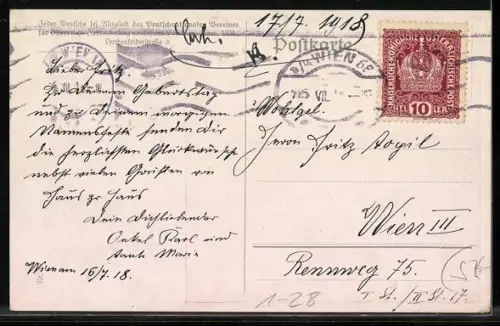 Jeder Deutsche sei Mitglied des Deutschen Vereines
für Österreich
Lerchenfelderstraße
17/7 1918
Postkarte
WIEN
KAISERLICHE KÖNIGLICHE ÖSTERREICHISCHE POST
HELLER 10 HELLER
Lieber Fritz!
Zu Deinem Geburtstag
und zu Deinem morgigen
Namensfeste senden Dir
die herzlichsten Glückwünsche
nebst vielen Grüßen von
Haus zu Haus
Dein Dichliebender
Onkel Karl und
Tante Marie
Wien am 16/7.18.
VII
Wohlgeb.
Herrn Fritz
Wien III
Rennweg 75.
I St./II St. 17.
1-28